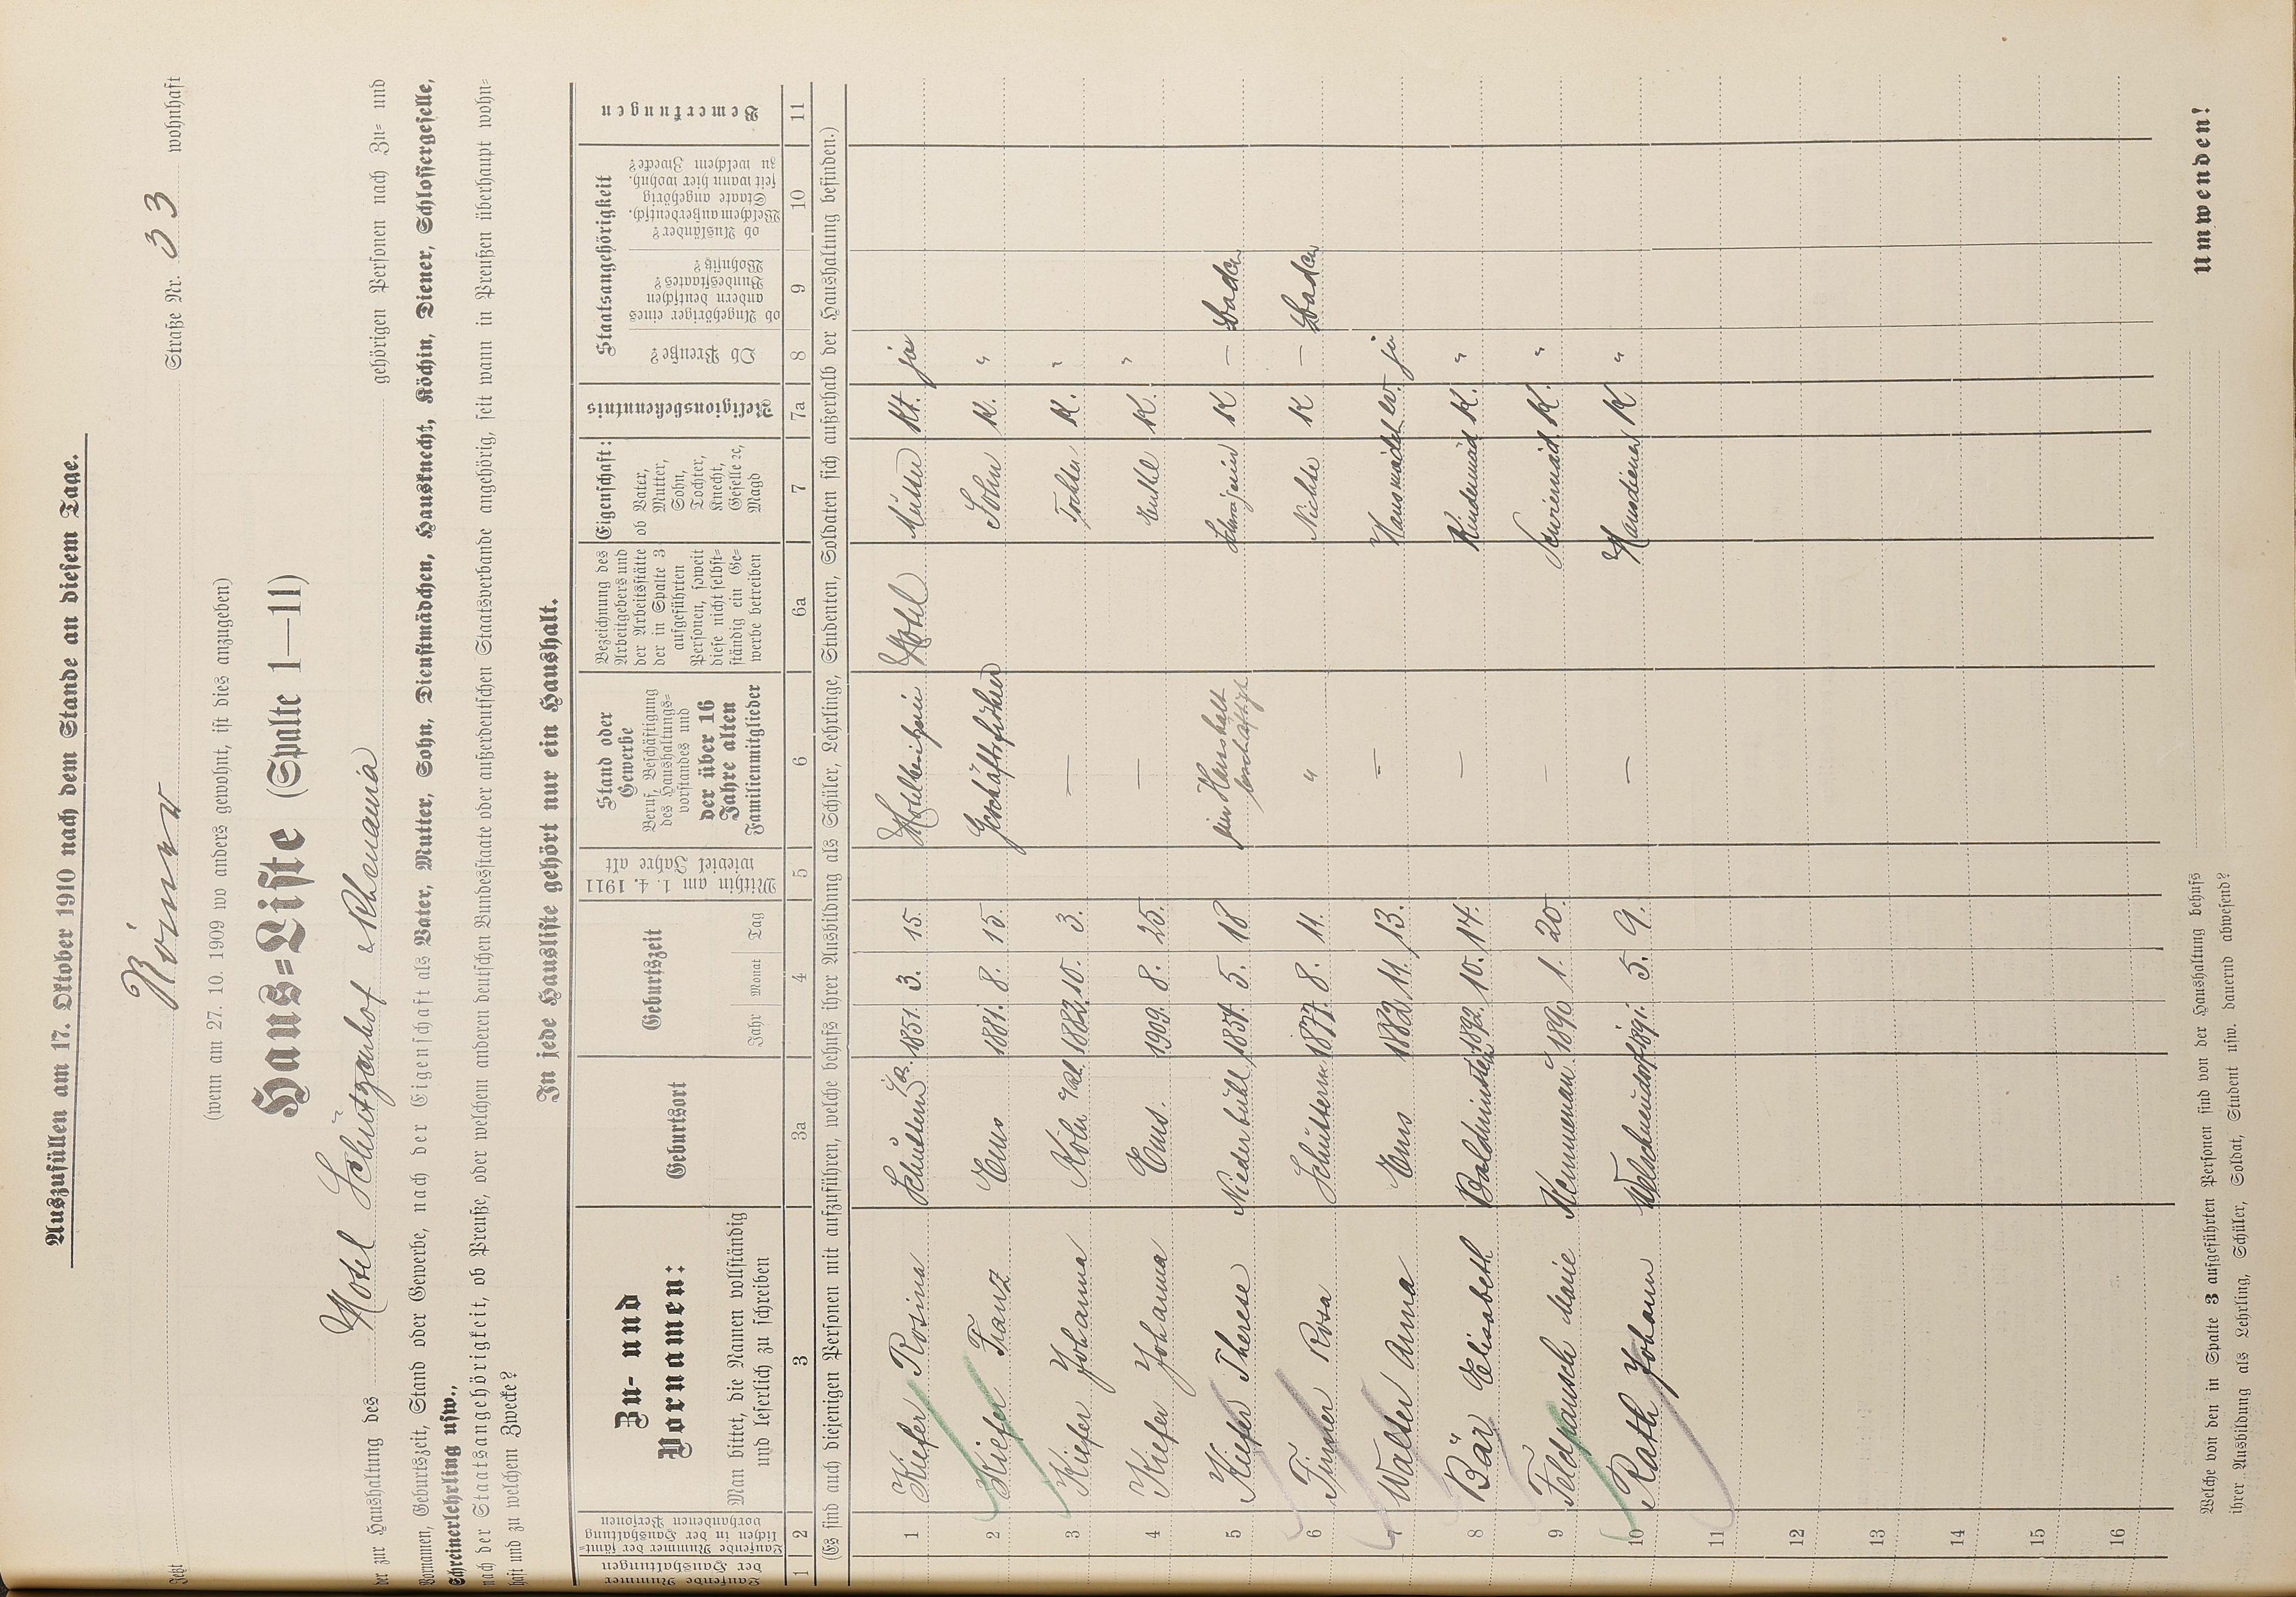 Auszufüllen am 17. Oktober 1910 nach dem Stande an diesem Tage.
Jetzt Römer Straße Nr. 33 wohnhaft
(wenn am 27. 10. 1909 wo anders gewohnt, ist dies anzugeben)
Haus=Liste (Spalte 1—11)
der zur Haushaltung des Hotel Schützenhof & Rhenania gehörigen Personen nach Zu= und
Vornamen, Geburtszeit, Stand oder Gewerbe, nach der Eigenschaft als Vater, Mutter, Sohn, Dienstmädchen, Hausknecht, Köchin, Diener, Schlossergeselle,
Schreinerlehrling usw.,
nach der Staatsangehörigkeit, ob Preuße, oder welchem anderen deutschen Bundesstaate oder außerdeutschen Staatsverbande angehörig, seit wann in Preußen überhaupt wohn=
haft und zu welchem Zwecke?
In jede Hausliste gehört nur ein Haushalt.
Laufende Nummer der Haushaltungen
Laufende Nummer der sämt=lichen in der Haushaltung vorhandenen Personen
Zu- und Vornamen:
Man bittet, die Namen vollständig und leserlich zu schreiben
Geburtsort
Geburtszeit
Jahr Monat Tag
Mithin am 1. 4. 1911 wieviel Jahre alt
Stand oder Gewerbe
Beruf, Beschäftigung des Haushaltungs=vorstandes und der über 16 Jahre alten Familienmitglieder
Bezeichnung des Arbeitgebers und der Arbeitsstätte der in Spalte 3 aufgeführten Personen, soweit diese nicht selbst=ständig ein Ge=werbe betreiben
Eigenschaft:
ob Vater, Mutter, Sohn, Tochter, Knecht, Geselle ec, Magd
Religionsbekenntnis
Staatsangehörigkeit
Ob Preuße?
ob Angehöriger eines andern deutschen Bundesstaates? Wohnsitz?
ob Ausländer? Welchem außerdeutsch. Staate angehörig seit wann hier wohnh. zu welchem Zwecke?
Bemerkungen
1 2 3 3a 4 5 6 6a 7 7a 8 9 10 11
(Es sind auch diejenigen Personen mit aufzuführen, welche behufs ihrer Ausbildung als Schüler, Lehrlinge, Studenten, Soldaten sich außerhalb der Haushaltung befinden.)
1 Kiefer Rosina Schuttern 1851. 3. 15. Hotelbesitzerin Hotel Mutter Kt. ja
2 Kiefer Franz Ems 1881. 8. 15. Geschäftsführer Sohn K. "
3 Kiefer Johanna Köln 1882. 10. 3. — Tochter K. "
4 Kiefer Johanna Ems. 1909. 8. 25. — Enkel K. "
5 Kiefer Therese Niederbühl 1854. 5. 18 im Haushalt beschäftigt K — Baden
6 Rosa Schuttern 1877. 8. 11. " Nichte K — Baden
7 Walter Anna Ems 1882 11. 13. — Hausmädch ev. ja
8 Bär Elisabeth 1892. 10. 14. — Kindermäd K. "
9 Feldpausch Marie Kemmenau 1890 1. 20. — Serviermäd. K. "
10 Rath Johann Welschneudorf 1891. 5. 9. — Hausdiener K "
11
12
13
14
15
16
Welche von den in Spalte 3 aufgeführten Personen sind von der Haushaltung behufs
ihrer Ausbildung als Lehrling, Schüler, Soldat, Student usw. dauernd abwesend?
Umwenden!